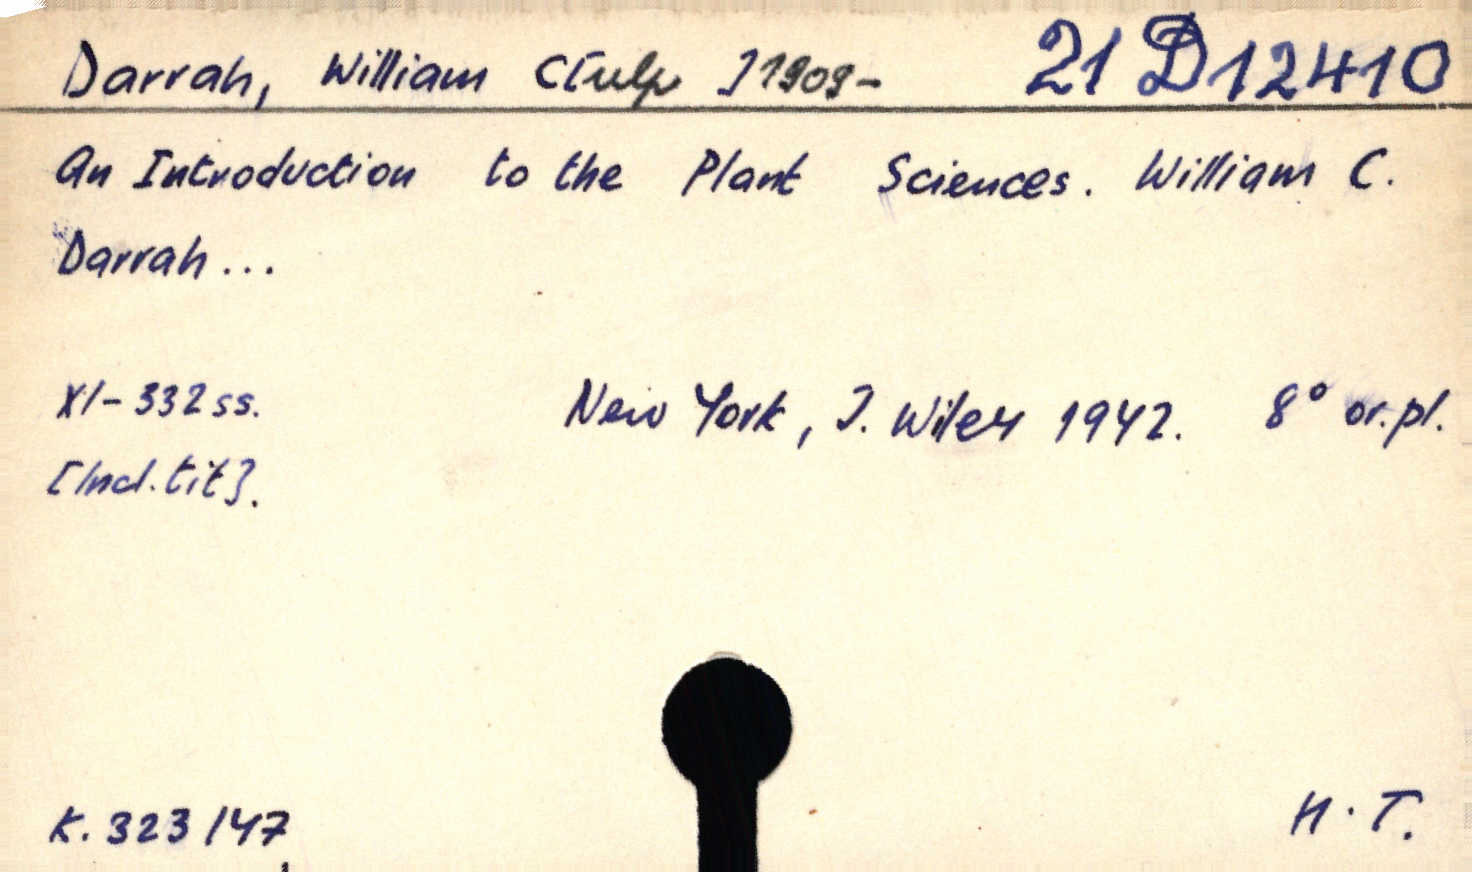 Darrah, William C[ulp] 1909- 21 D 12410
An Introduction to the Plant Sciences. William C.
Darrah...
XI-332 ss. New York, J. Wiley 1942. 8° or. pl.
[Incl. tit].
K. 323/47 H. T.